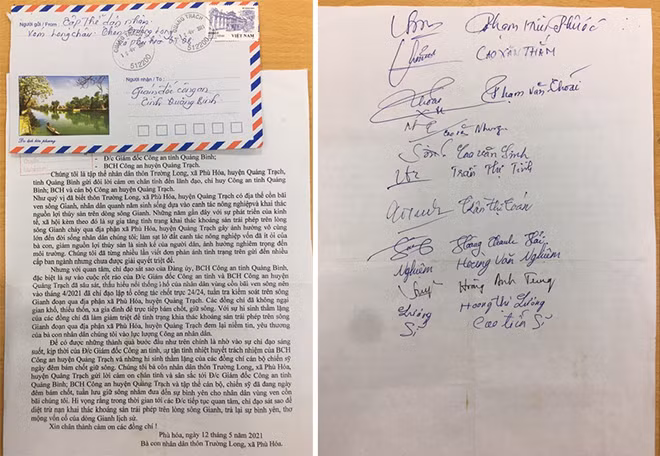 Người gửi / From
Tập thể dân nhân
VIỆT NAM
512200
Người nhận / To :
Giám đốc công an
Tỉnh Quảng Bình
- Đ/c Giám đốc Công an tỉnh Quảng Bình;
- BCH Công an huyện Quảng Trạch.
Chúng tôi là tập thể nhân dân thôn Trường Long, xã Phù Hóa, huyện Quảng Trạch,
tỉnh Quảng Bình gửi đôi lời cảm ơn chân tình đến lãnh đạo, chỉ huy Công an tỉnh Quảng
Bình; BCH và cán bộ Công an huyện Quảng Trạch.
Như quý vị đã biết thôn Trường Long, xã Phù Hóa, huyện Quảng Trạch có địa thế cồn bãi
ven sông Gianh, nhân dân quanh năm sinh sống dựa vào canh tác nông nghiệp và khai thác
nguồn lợi thủy sản trên dòng sông Gianh. Những năm gần đây với sự phát triển của kinh
tế, xã hội kèm theo đó là sự gia tăng tình trạng khai thác khoáng sản trái phép trên lòng sông
Gianh chảy qua địa phận xã Phù Hóa, huyện Quảng Trạch gây ảnh hưởng vô cùng
lớn đến đời sống nhân dân chúng tôi; làm sạt lở đất canh tác nông nghiệp vốn đã ít ỏi của
bà con, giảm nguồn lợi thủy sản là sinh kế của người dân, ảnh hưởng nghiêm trọng đến
môi trường. Chúng tôi đã từng nhiều lần viết đơn phản ánh tình trạng trên gửi đến nhiều
cấp ban ngành nhưng chưa được giải quyết triệt để.
Nhưng với quan tâm, chỉ đạo sát sao của Đảng ủy, BCH Công an tỉnh Quảng Bình,
đặc biệt là sự vào cuộc rốt ráo của Đ/c Giám đốc Công an tỉnh và Công an huyện
Quảng Trạch đã sâu sát, thấu hiểu nỗi thống khổ của nhân dân vùng cồn bãi ven sông nên
vào tháng 4/2021 đã chỉ đạo lập tổ công tác chốt trực 24/24, tuần tra kiểm soát trên sông
Gianh đoạn qua địa phận xã Phù Hóa, huyện Quảng Trạch. Các đồng chí đã không ngại
gian khổ, thiếu thốn, xa gia đình để trực tiếp bám chốt, giữ sông. Với sự hi sinh thầm lặng
của các đồng chí đã làm giảm triệt để tình trạng khai thác khoáng sản trái phép trên lòng
sông Gianh đoạn qua địa phận xã Phù Hóa, huyện Quảng Trạch đem lại niềm tin, yêu thương
của bà con nhân dân chúng tôi vào lực lượng Công an nhân dân.
Để có được những thành quả bước đầu như trên chính là nhờ vào sự chỉ đạo sáng
suốt, kịp thời của Đ/c Giám đốc Công an tỉnh, sự tận tình nhiệt huyết trách nhiệm của BCH
Công an huyện Quảng Trạch và những hi sinh thầm lặng của các đồng chí cán bộ chiến sỹ
ngày đêm bám chốt giữ sông. Chúng tôi bà côn nhân dân thôn Trường Long, xã Phù Hóa,
huyện Quảng Trạch xin được gửi lời cảm ơn chân tình và sân sắc tới Đ/c Giám đốc Công an
tỉnh Quảng Bình; BCH Công an huyện Quảng Trạch và tập thể cán bộ, chiến sỹ đã đang ngày
đêm bám chốt, tuần lưu giữ sông nhằm đưa đến sự bình yên cho nhân dân vùng ven cồn
bãi chúng tôi. Hi vọng rằng trong thời gian tới các Đ/c tiếp tục quan tâm, chỉ đạo sát sao để
diệt trừ nạn khai thác khoáng sản trái phép trên lòng sông Gianh, trả lại sự bình yên, thơ
mộng vốn cổ của dòng Gianh lịch sử.
Xin chân thành cảm ơn các đồng chí !
Phù hóa, ngày 12 tháng 5 năm 2021
Bà con nhân dân thôn Trường Long, xã Phù Hóa.
CAO XÂN THẮM
Phạm Văn Thoai
Nhung
Cao Văn Sinh
Trần Thị Tình
Hoàng Thanh Hải
Nghiêm Hoàng Văn Nghiêm
Hoàng Anh Tung
Cao Tiến Sĩ